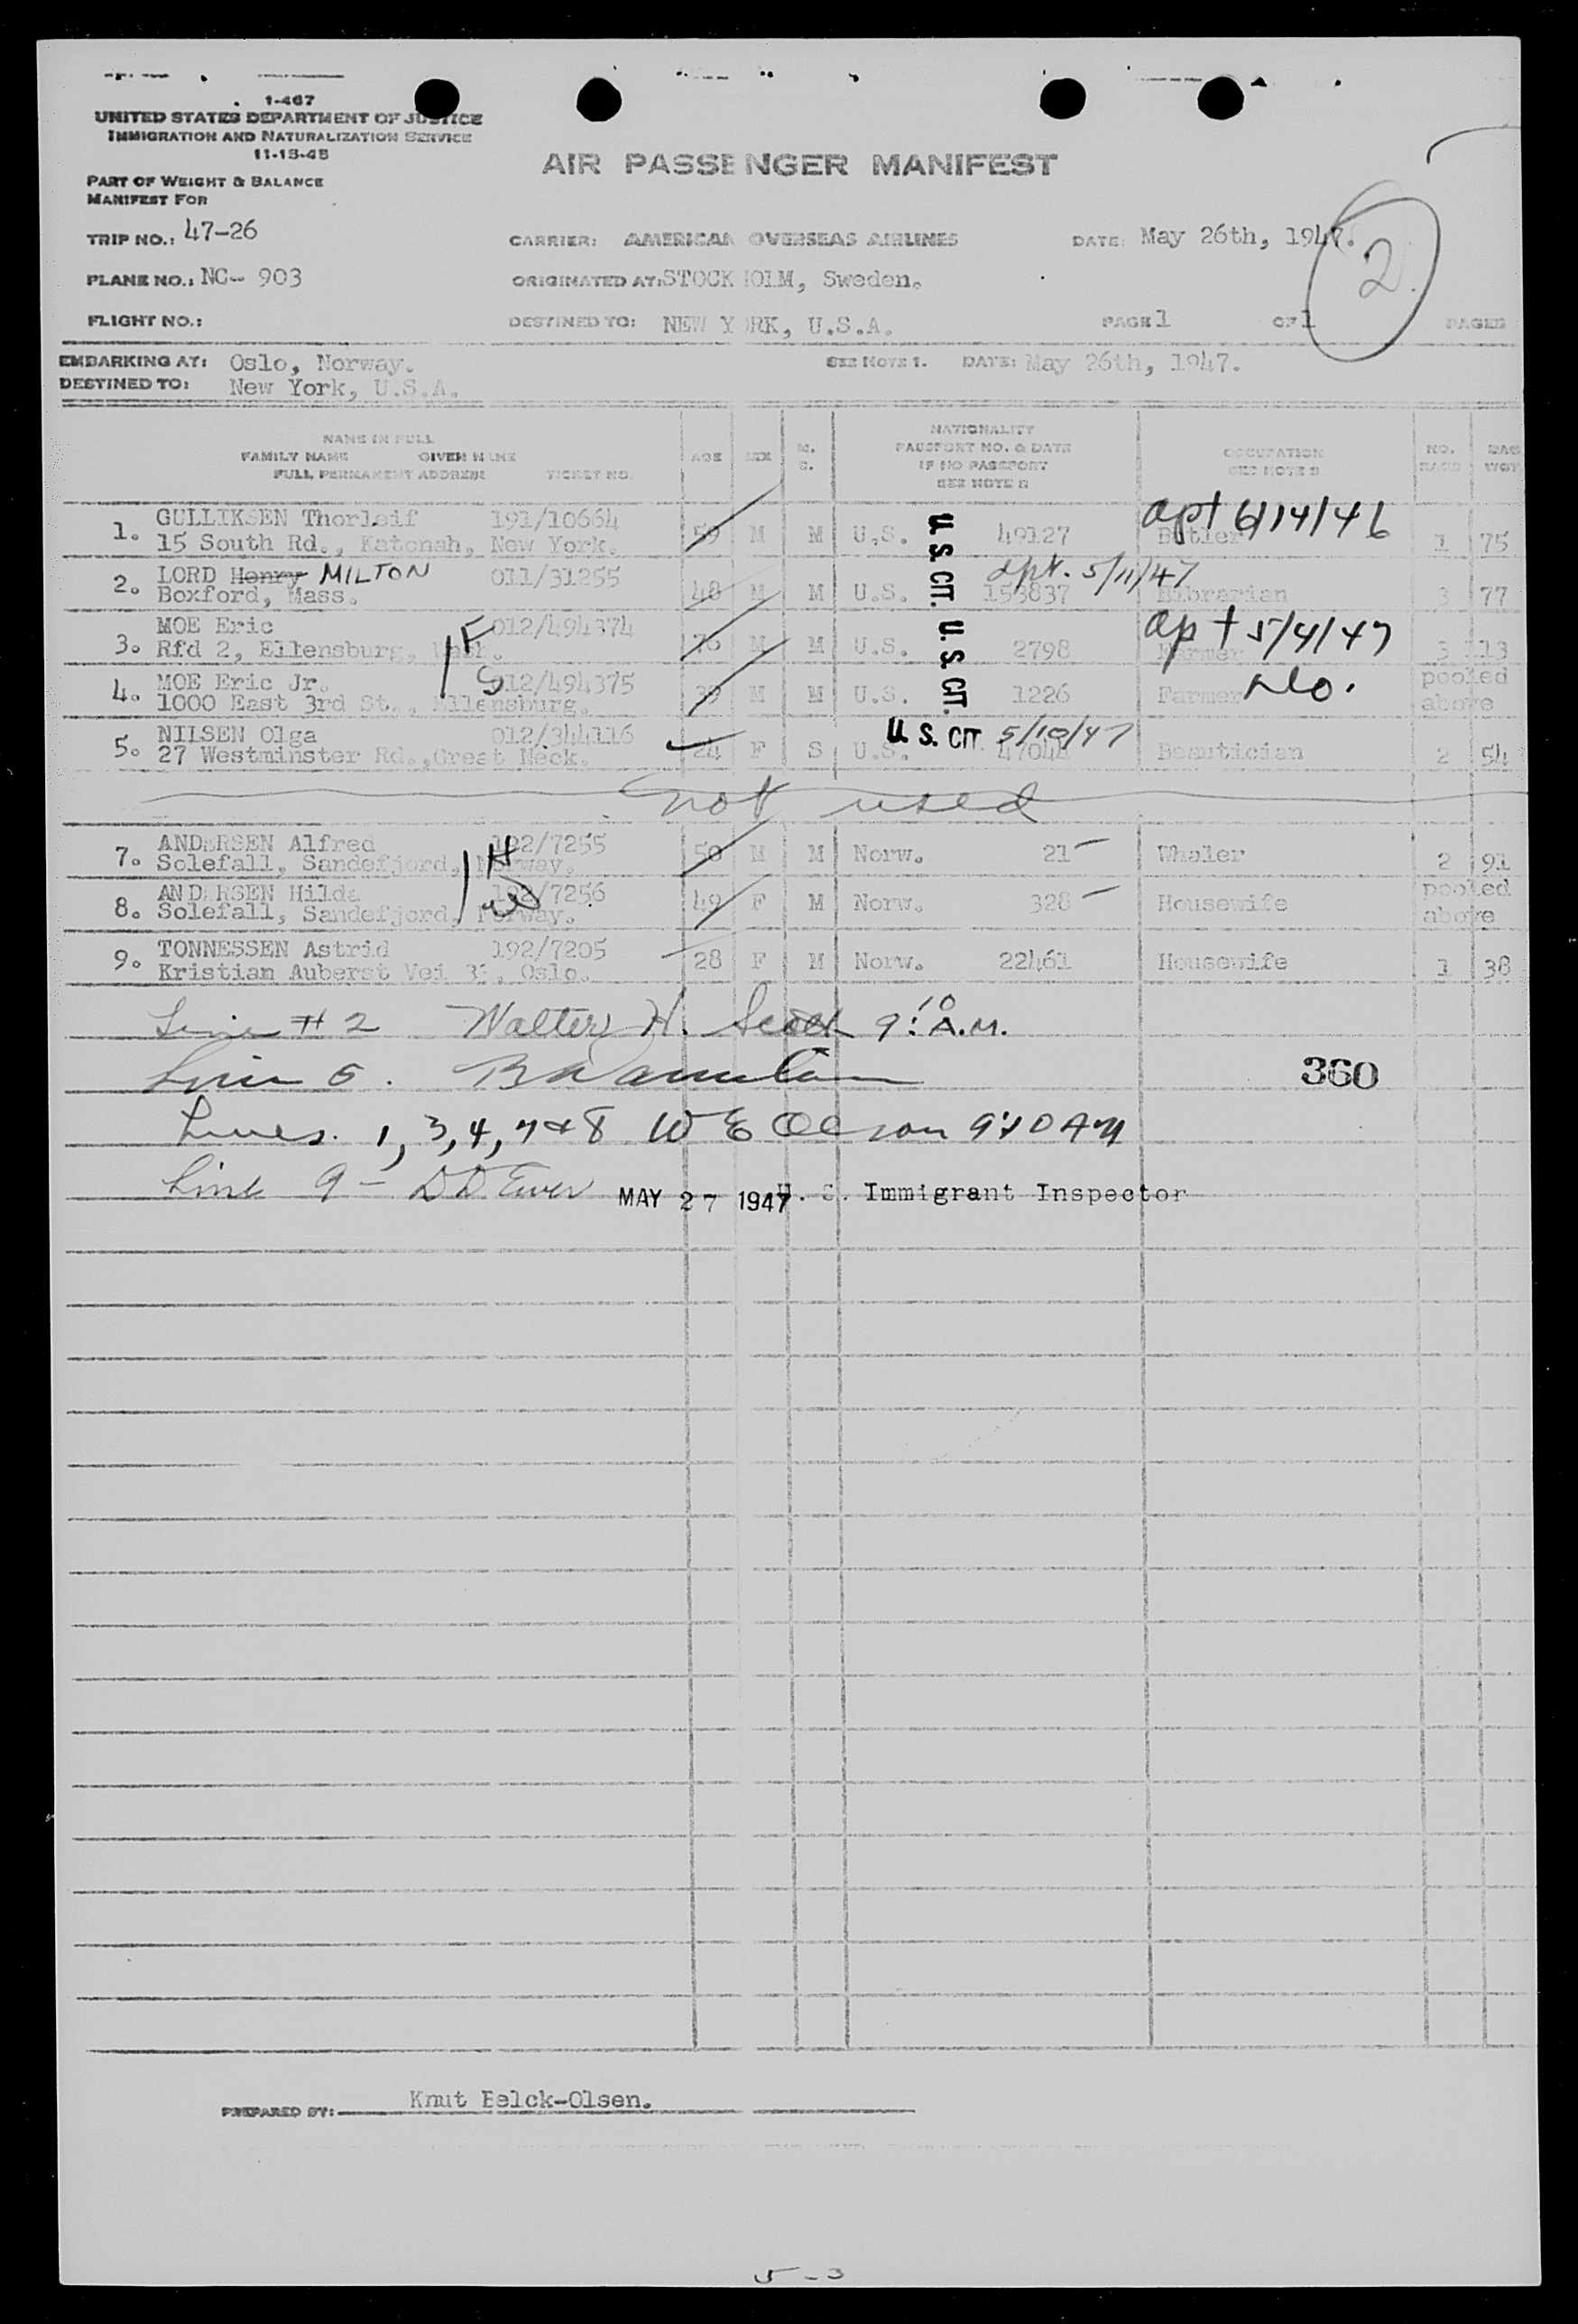 1-467
UNITED STATES DEPARTMENT OF JUSTICE
IMMIGRATION AND NATURALIZATION SERVICE
11-13-45
AIR PASSENGER MANIFEST
PART OF WEIGHT & BALANCE
MANIFEST FOR
TRIP NO.: 47-26 CARRIER: AMERICAN OVERSEAS AIRLINES DATE: May 26th, 1947.
2
PLANE NO.: NC- 903 ORIGINATED AT: STOCKHOLM, Sweden.
FLIGHT NO.: DESTINED TO: NEW YORK, U.S.A. PAGE 1 OF 1 PAGES
EMBARKING AT: Oslo, Norway. SEE NOTE 1. DATE: May 26th, 1947.
DESTINED TO: New York, U.S.A.
NAME IN FULL
FAMILY NAME GIVEN NAME
FULL PERMANENT ADDRESS TICKET NO.
AGE SEX M. S.
NATIONALITY
PASSPORT NO. & DATE
IF NO PASSPORT
SEE NOTE
OCCUPATION
SEE NOTE
NO. BAGS BAG WGT
1. GULLIKSEN Thorleif 191/10664 apt 6/14/46
15 South Rd., Katonah, New York. 59 M M U.S. U.S. CIT. 49127 Butler 1 75
2. LORD Henry MILTON 011/31255 apt. 5/11/47
Boxford, Mass. 48 M M U.S. 153837 Librarian 3 77
3. MOE Eric F 012/494374 apt 5/4/47
Rfd 2, Ellensburg, Wash. 76 M M U.S. U.S. CIT. 2798 Farmer 3 113
4. MOE Eric Jr. S 012/494375 Do. pooled
1000 East 3rd St., Ellensburg. 39 M M U.S. 1226 Farmer above
5. NILSEN Olga 012/344116 U.S. CIT. 5/10/47
27 Westminster Rd.,Great Neck. 24 F S U.S. 47044 Beautician 2 54
not used
7. ANDERSEN Alfred 192/7255 H
Solefall, Sandefjord, Norway. 50 M M Norw. 21 Whaler 2 91
8. ANDERSEN Hilda 192/7256 W pooled
Solefall, Sandefjord, Norway. 49 F M Norw. 328 Housewife above
9. TONNESSEN Astrid 192/7205
Kristian Auberst Vei , Oslo. 28 F M Norw. 22461 Housewife 1 38
Line #2 Walter H. 9:10 A.M.
Line 5.
360
Lines. 1, 3, 4, 7 & 8 W E Olson 9:10 AM
Line 9 - MAY 27 1947 U. S. Immigrant Inspector
PREPARED BY: Knut Belck-Olsen.
5-3